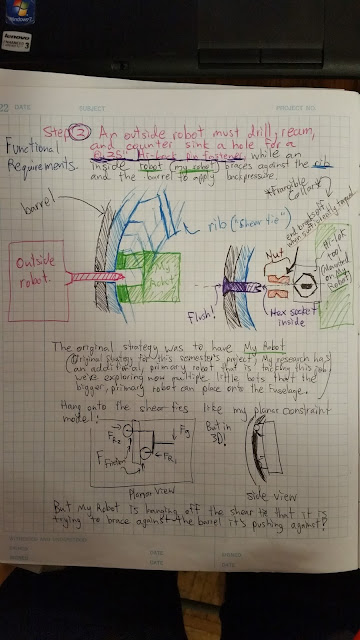 Windows 7
lenovo
22 DATE
SUBJECT
PROJECT NO.
Step ② An outside robot must drill, ream,
and counter sink a hole for a
Hi-Lock Pin fastener while an
inside robot (my robot) braces against the rib
and the barrel to apply backpressure.
Functional
Requirements.
*Frangible
Collar*
barrel
rib ("shear tie")
end breaks off
when sufficiently torqued
Outside
robot.
My
Robot
Nut
Hi-Lok
tool
(Mounted
on My
Robot)
Flush!
Hex socket
inside
The original strategy was to have My Robot
(Original strategy for this semester's project, My research has
an additional, primary robot that is tackling this job
we're exploring now multiple little bots that the
bigger, primary robot can place onto the Fuselage.)
Hang onto the shear ties like my planar constraint
model!
But in
3D!
F_R2
Fg
F_Friction
F_R1
Planar View
side view
But My Robot is hanging off the shear tie that it is
trying to brace against the barrel it's pushing against!
SIGNED
DATE
SIGNED
DATE
DATE
DATE